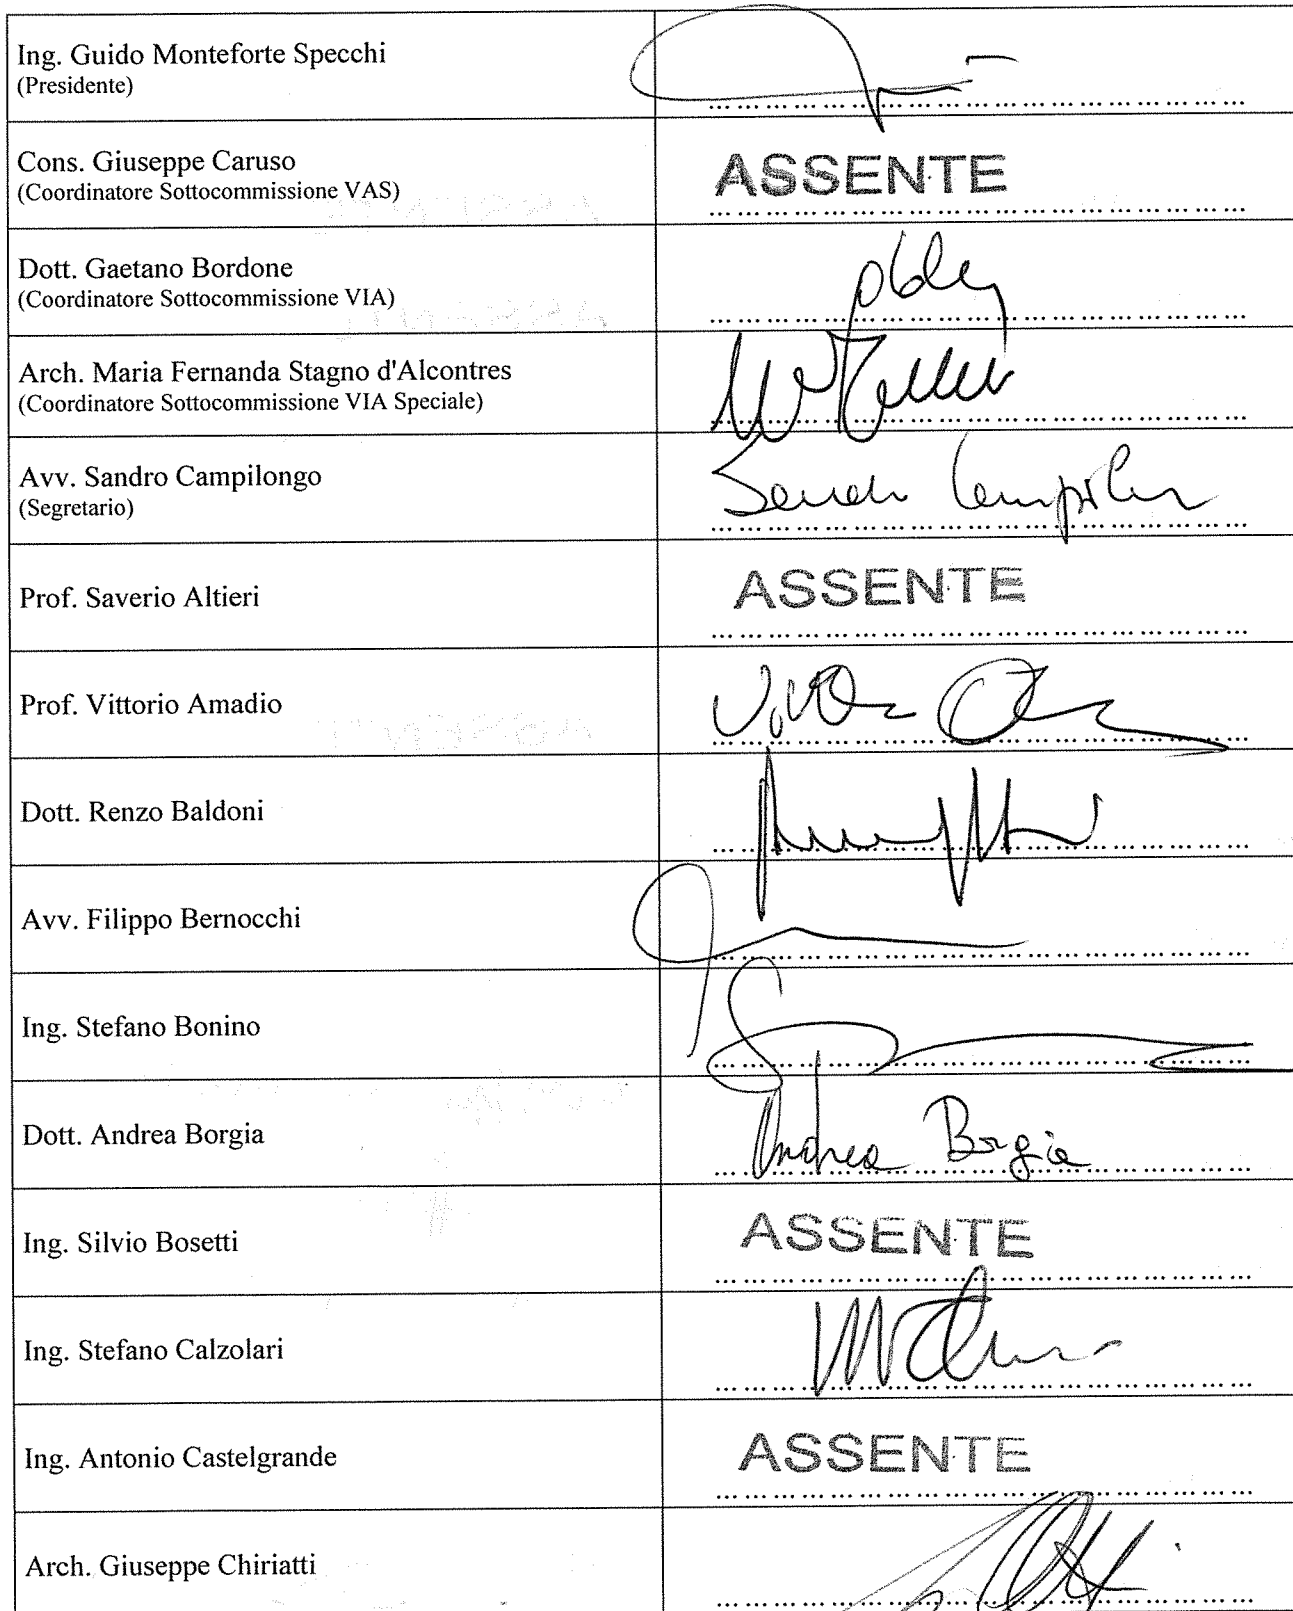 Ing. Guido Monteforte Specchi
(Presidente)
Cons. Giuseppe Caruso
(Coordinatore Sottocommissione VAS)
ASSENTE
Dott. Gaetano Bordone
(Coordinatore Sottocommissione VIA)
Arch. Maria Fernanda Stagno d'Alcontres
(Coordinatore Sottocommissione VIA Speciale)
Avv. Sandro Campilongo
(Segretario)
Prof. Saverio Altieri
ASSENTE
Prof. Vittorio Amadio
Dott. Renzo Baldoni
Avv. Filippo Bernocchi
Ing. Stefano Bonino
Dott. Andrea Borgia
Andrea Borgia
Ing. Silvio Bosetti
ASSENTE
Ing. Stefano Calzolari
Ing. Antonio Castelgrande
ASSENTE
Arch. Giuseppe Chiriatti